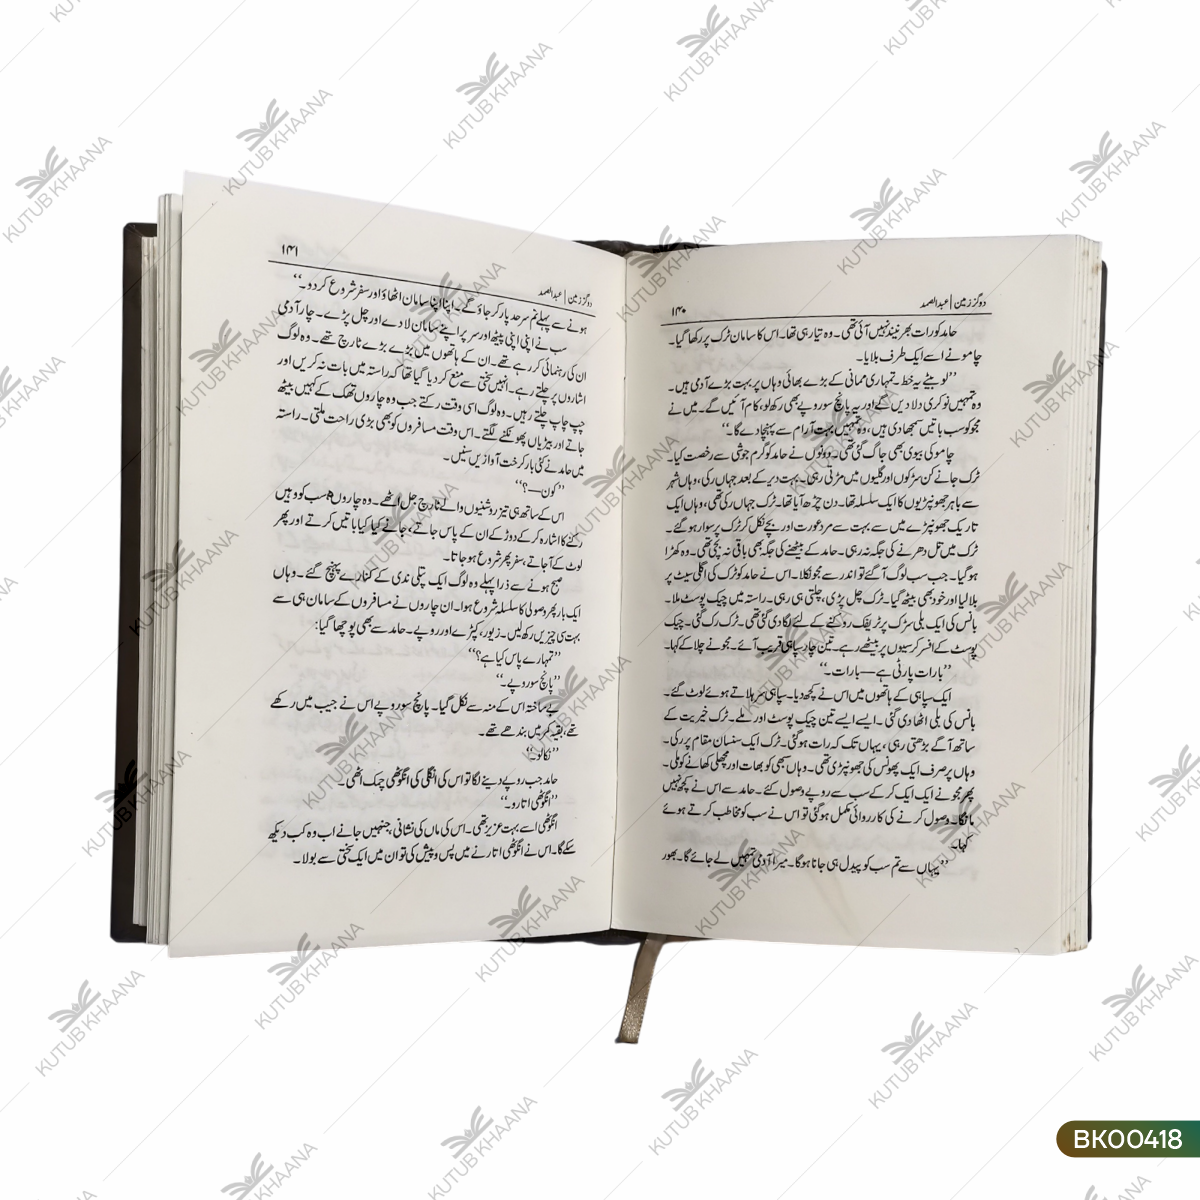 دو گز زمین | عبدالصمد
۱۴۰
حامد کو رات بھر نیند نہیں آئی تھی۔ وہ تیار ہی تھا۔ اس کا سامان ٹرک پر رکھا گیا۔
چامو نے اسے ایک طرف بلایا۔
”لو بیٹے یہ خط۔ تمہاری ممانی کے بڑے بھائی وہاں پر بہت بڑے آدمی ہیں۔
وہ تمہیں نوکری دلا دیں گے اور یہ پانچ سو روپے بھی رکھ لو، کام آئیں گے۔ میں نے
مجو کو سب باتیں سمجھا دی ہیں، وہ تمہیں بہت آرام سے پہنچا دے گا۔“
چامو کی بیوی بھی جاگ گئی تھی۔ دونوں نے حامد کو گرم جوشی سے رخصت کیا۔
ٹرک جانے کن سڑکوں اور گلیوں میں مڑتی رہی۔ بہت دیر کے بعد جہاں رکی، وہاں شہر
سے باہر جھونپڑیوں کا ایک سلسلہ تھا۔ دن چڑھ آیا تھا۔ ٹرک جہاں رکی تھی، وہاں ایک
تاریک جھونپڑے میں سے بہت سے مرد عورت اور بچے نکل کر ٹرک پر سوار ہو گئے۔
ٹرک میں تل دھرنے کی جگہ نہ رہی۔ حامد کے بیٹھنے کی جگہ بھی باقی نہ بچی تھی۔ وہ کھڑا
ہو گیا۔ جب سب لوگ آ گئے تو اندر سے مجو نکلا۔ اس نے حامد کو ٹرک کی اگلی سیٹ پر
بلا لیا اور خود بھی بیٹھ گیا۔ ٹرک چل پڑی، چلتی ہی رہی۔ راستہ میں چیک پوسٹ ملا۔
بانس کی ایک بلی سڑک پر ٹریفک روکنے کے لئے لگا دی گئی تھی۔ ٹرک رک گئی۔ چیک
پوسٹ کے افسر کرسیوں پر بیٹھے رہے۔ تین چار سپاہی قریب آئے۔ مجو نے چلا کے کہا۔
”بارات پارٹی ہے — بارات۔“
ایک سپاہی کے ہاتھوں میں اس نے کچھ دیا۔ سپاہی سر ہلاتے ہوئے لوٹ گئے۔
بانس کی بلی اٹھا دی گئی۔ ایسے ایسے تین چیک پوسٹ اور ملے۔ ٹرک خیریت کے
ساتھ آگے بڑھتی رہی، یہاں تک کہ رات ہو گئی۔ ٹرک ایک سنسان مقام پر رکی۔
وہاں پر صرف ایک پھونس کی جھونپڑی تھی۔ وہاں سبھی کو بھات اور مچھلی کھانے کو ملی۔
پھر مجو نے ایک ایک کر کے سب سے روپے وصول کئے۔ حامد سے اس نے کچھ نہیں
مانگا۔ وصول کرنے کی کارروائی مکمل ہو گئی تو اس نے سب کو مخاطب کرتے ہوئے
کہا۔
”یہاں سے تم سب کو پیدل ہی جانا ہوگا۔ میرا آدمی تمہیں لے جائے گا۔ بھور
دو گز زمین | عبدالصمد
۱۴۱
ہونے سے پہلے تم سرحد پار کر جاؤ گے۔ اپنا اپنا سامان اٹھاؤ اور سفر شروع کر دو۔“
سب نے اپنی اپنی پیٹھ اور سر پر اپنے سامان لا دے اور چل پڑے۔ چار آدمی
ان کی رہنمائی کر رہے تھے۔ ان کے ہاتھوں میں بڑے بڑے ٹارچ تھے۔ وہ لوگ
اشاروں پر چلتے رہے۔ انہیں سختی سے منع کر دیا گیا تھا کہ راستہ میں بات نہ کریں اور
چپ چاپ چلتے رہیں۔ وہ لوگ اسی وقت رکتے جب وہ چاروں تھک کے کہیں بیٹھ
جاتے اور بیڑیاں پھونکنے لگتے۔ اس وقت مسافروں کو بھی بڑی راحت ملتی۔ راستہ
میں حامد نے کئی بار کرخت آوازیں سنیں۔
”کون—؟“
اس کے ساتھ ہی تیز روشنیوں والے ٹارچ جل اٹھے۔ وہ چاروں سب کو وہیں
رکنے کا اشارہ کر کے دوڑ کے ان کے پاس جاتے، جانے کیا کیا باتیں کرتے اور پھر
لوٹ کے آ جاتے، سفر پھر شروع ہو جاتا۔
صبح ہونے سے ذرا پہلے وہ لوگ ایک پتلی ندی کے کنارے پہنچ گئے۔ وہاں
ایک بار پھر وصولی کا سلسلہ شروع ہوا۔ ان چاروں نے مسافروں کے سامان ہی سے
بہت سی چیزیں رکھ لیں۔ زیور، کپڑے اور روپے۔ حامد سے بھی پوچھا گیا:
”تمہارے پاس کیا ہے؟“
”پانچ سو روپے۔“
بے ساختہ اس کے منہ سے نکل گیا۔ پانچ سو روپے اس نے جیب میں رکھے
تھے، بقیہ کمر میں بندھے تھے۔
”نکالو۔“
حامد جب روپے دینے لگا تو اس کی انگلی کی انگوٹھی چمک اٹھی۔
”انگوٹھی اتارو۔“
انگوٹھی اسے بہت عزیز تھی۔ اس کی ماں کی نشانی، جنہیں جانے اب وہ کب دیکھ
سکے گا۔ اس نے انگوٹھی اتارنے میں پس و پیش کی تو ان میں ایک سختی سے بولا۔
KUTUB KHAANA
BK00418